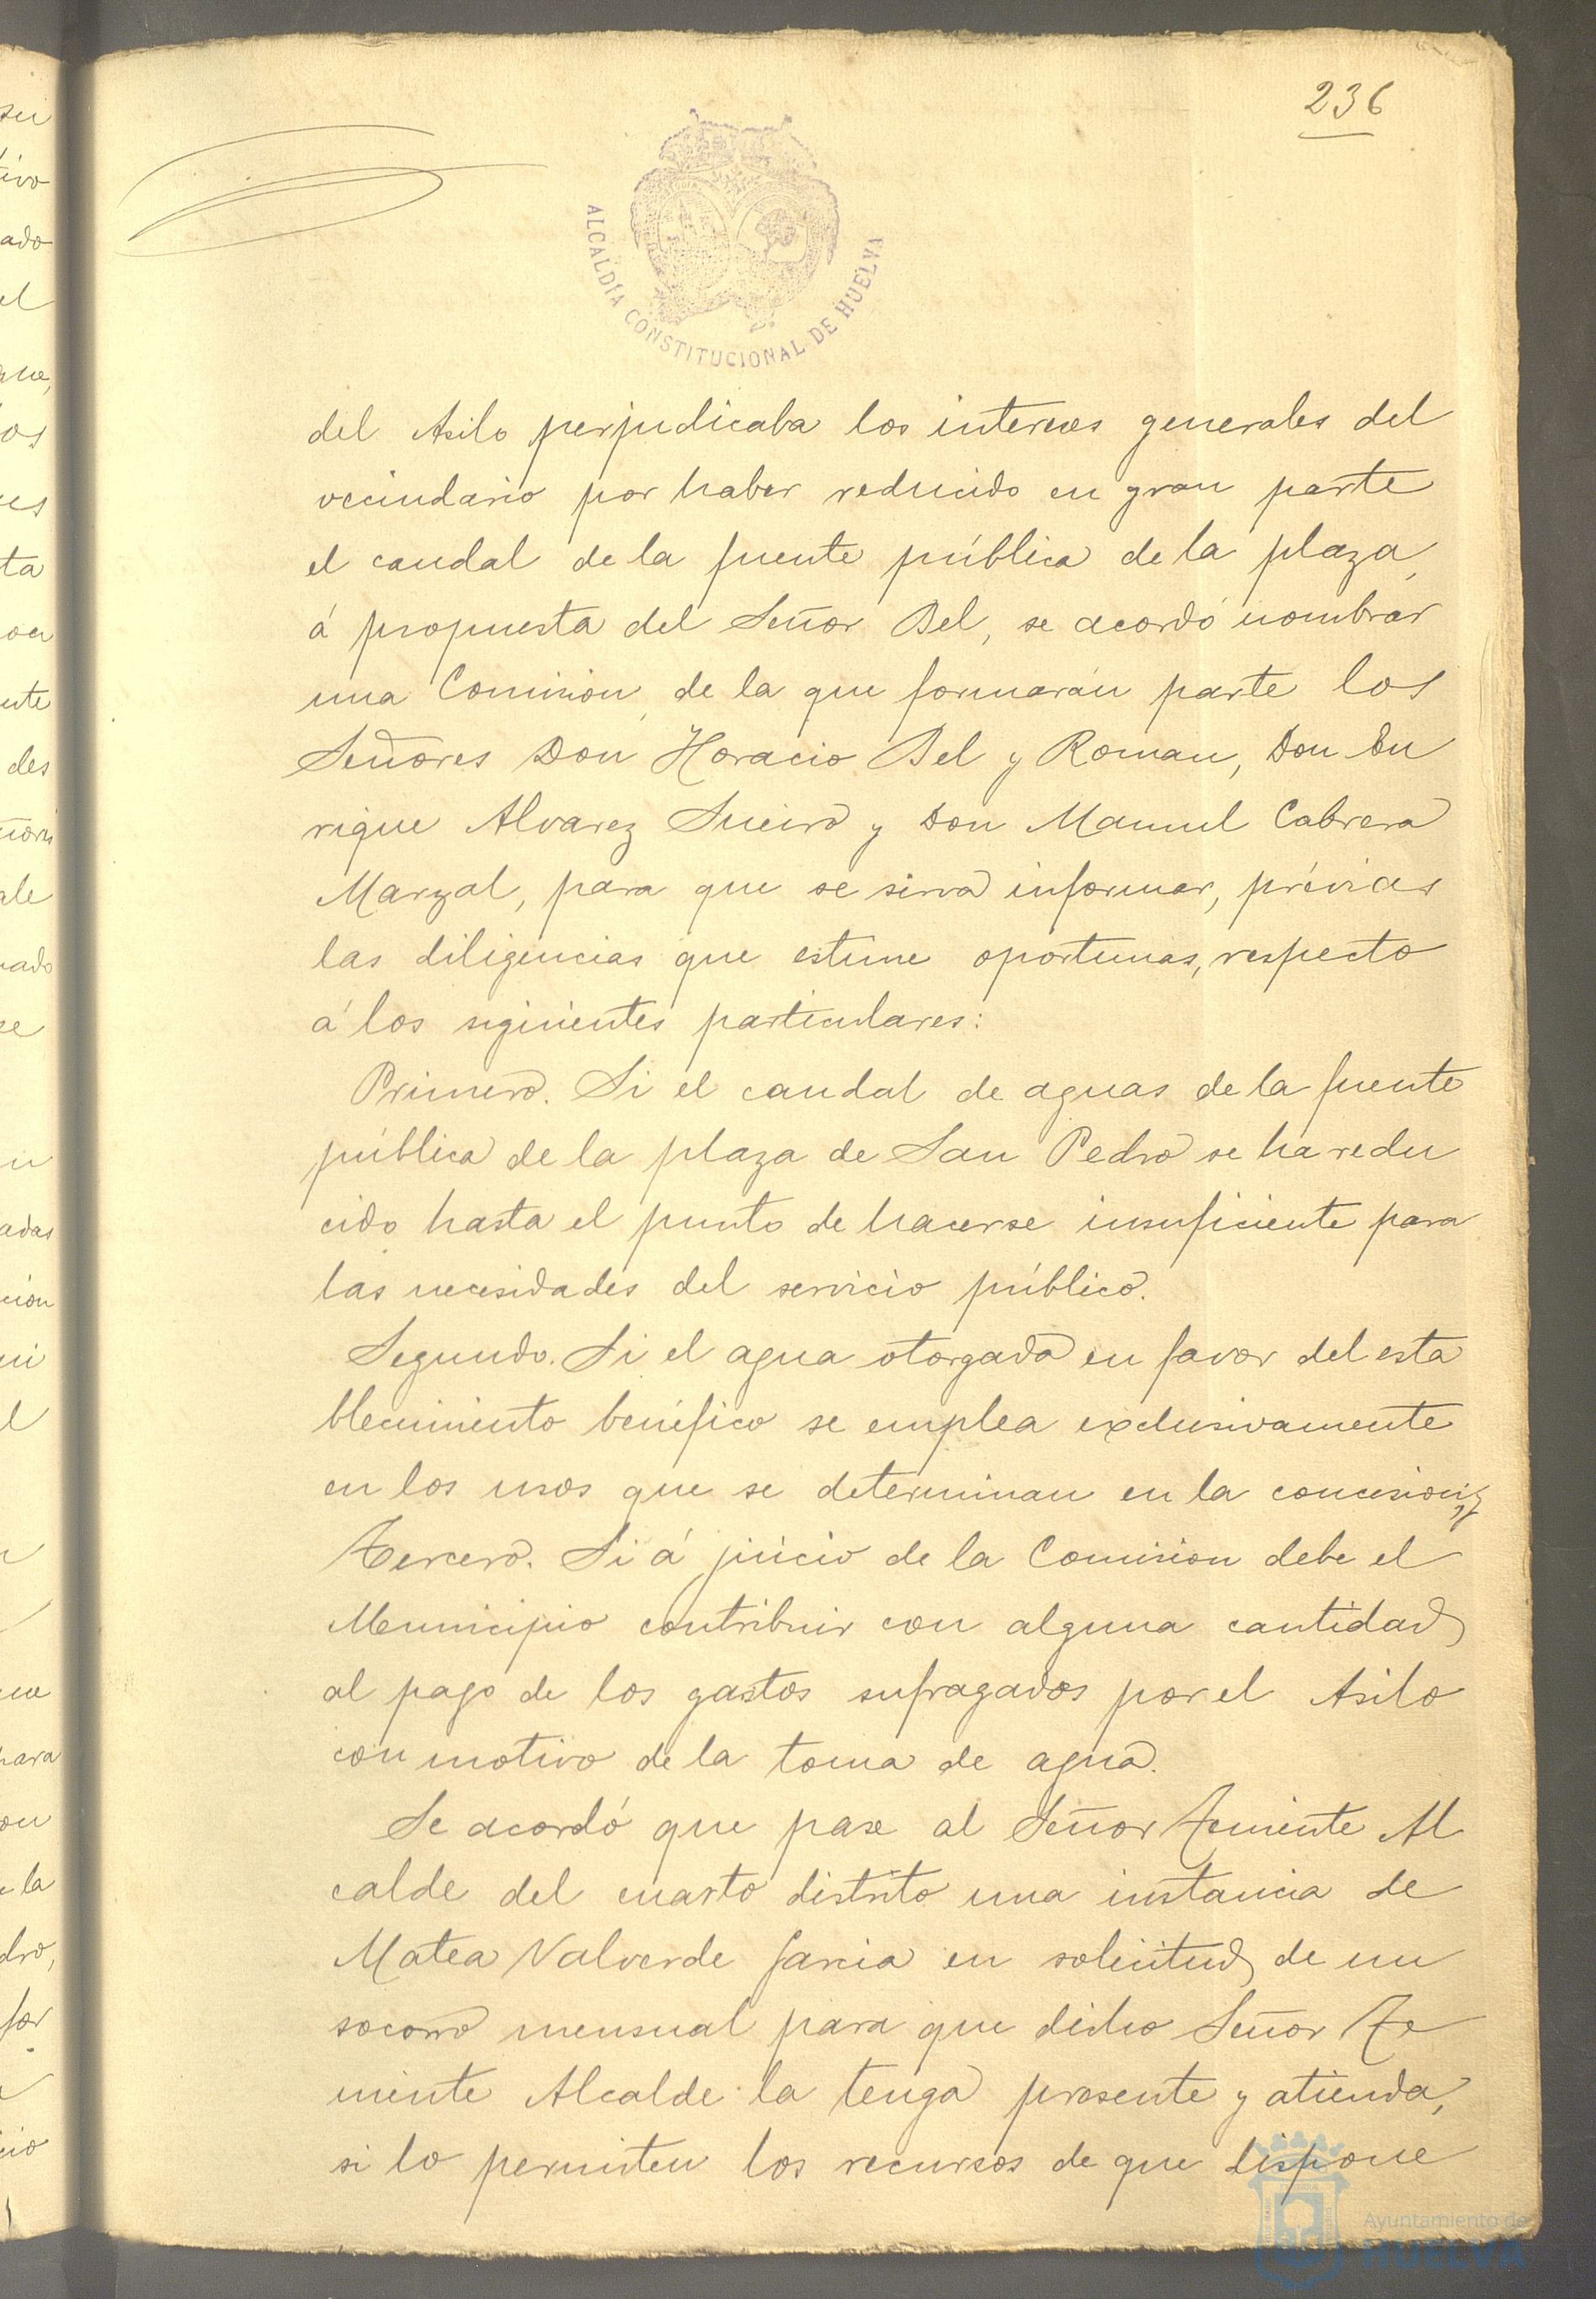 236
ALCALDÍA CONSTITUCIONAL DE HUELVA
del Asilo perjudicaba los intereses generales del
vecindario por haber reducido en gran parte
el caudal de la fuente pública de la plaza,
á propuesta del Señor Bel, se acordó nombrar
una Comision, de la que formarán parte los
Señores Don Horacio Bel y Roman, Don En
rique Alvarez Sueiro y Don Manuel Cabrera
Marzal, para que se sirva informar, prévias
las diligencias que estime oportunas, respecto
á los siguientes particulares:
Primero. Si el caudal de aguas de la fuente
pública de la plaza de San Pedro se ha redu
cido hasta el punto de hacerse insuficiente para
las necesidades del servicio público.
Segundo. Si el agua otorgada en favor del esta
blecimiento benéfico se emplea exclusivamente
en los usos que se determinan en la concesion; y
Tercero. Si á juicio de la Comision debe el
Municipio contribuir con alguna cantidad
al pago de los gastos sufragados por el Asilo
con motivo de la toma de agua.
Se acordó que pase al Señor Teniente Al
calde del cuarto distrito una instancia de
Matea Valverde Garcia en solicitud de un
socorro mensual para que dicho Señor Te
niente Alcalde la tenga presente y atienda,
si lo permiten los recursos de que dispone
Ayuntamiento de
HUELVA